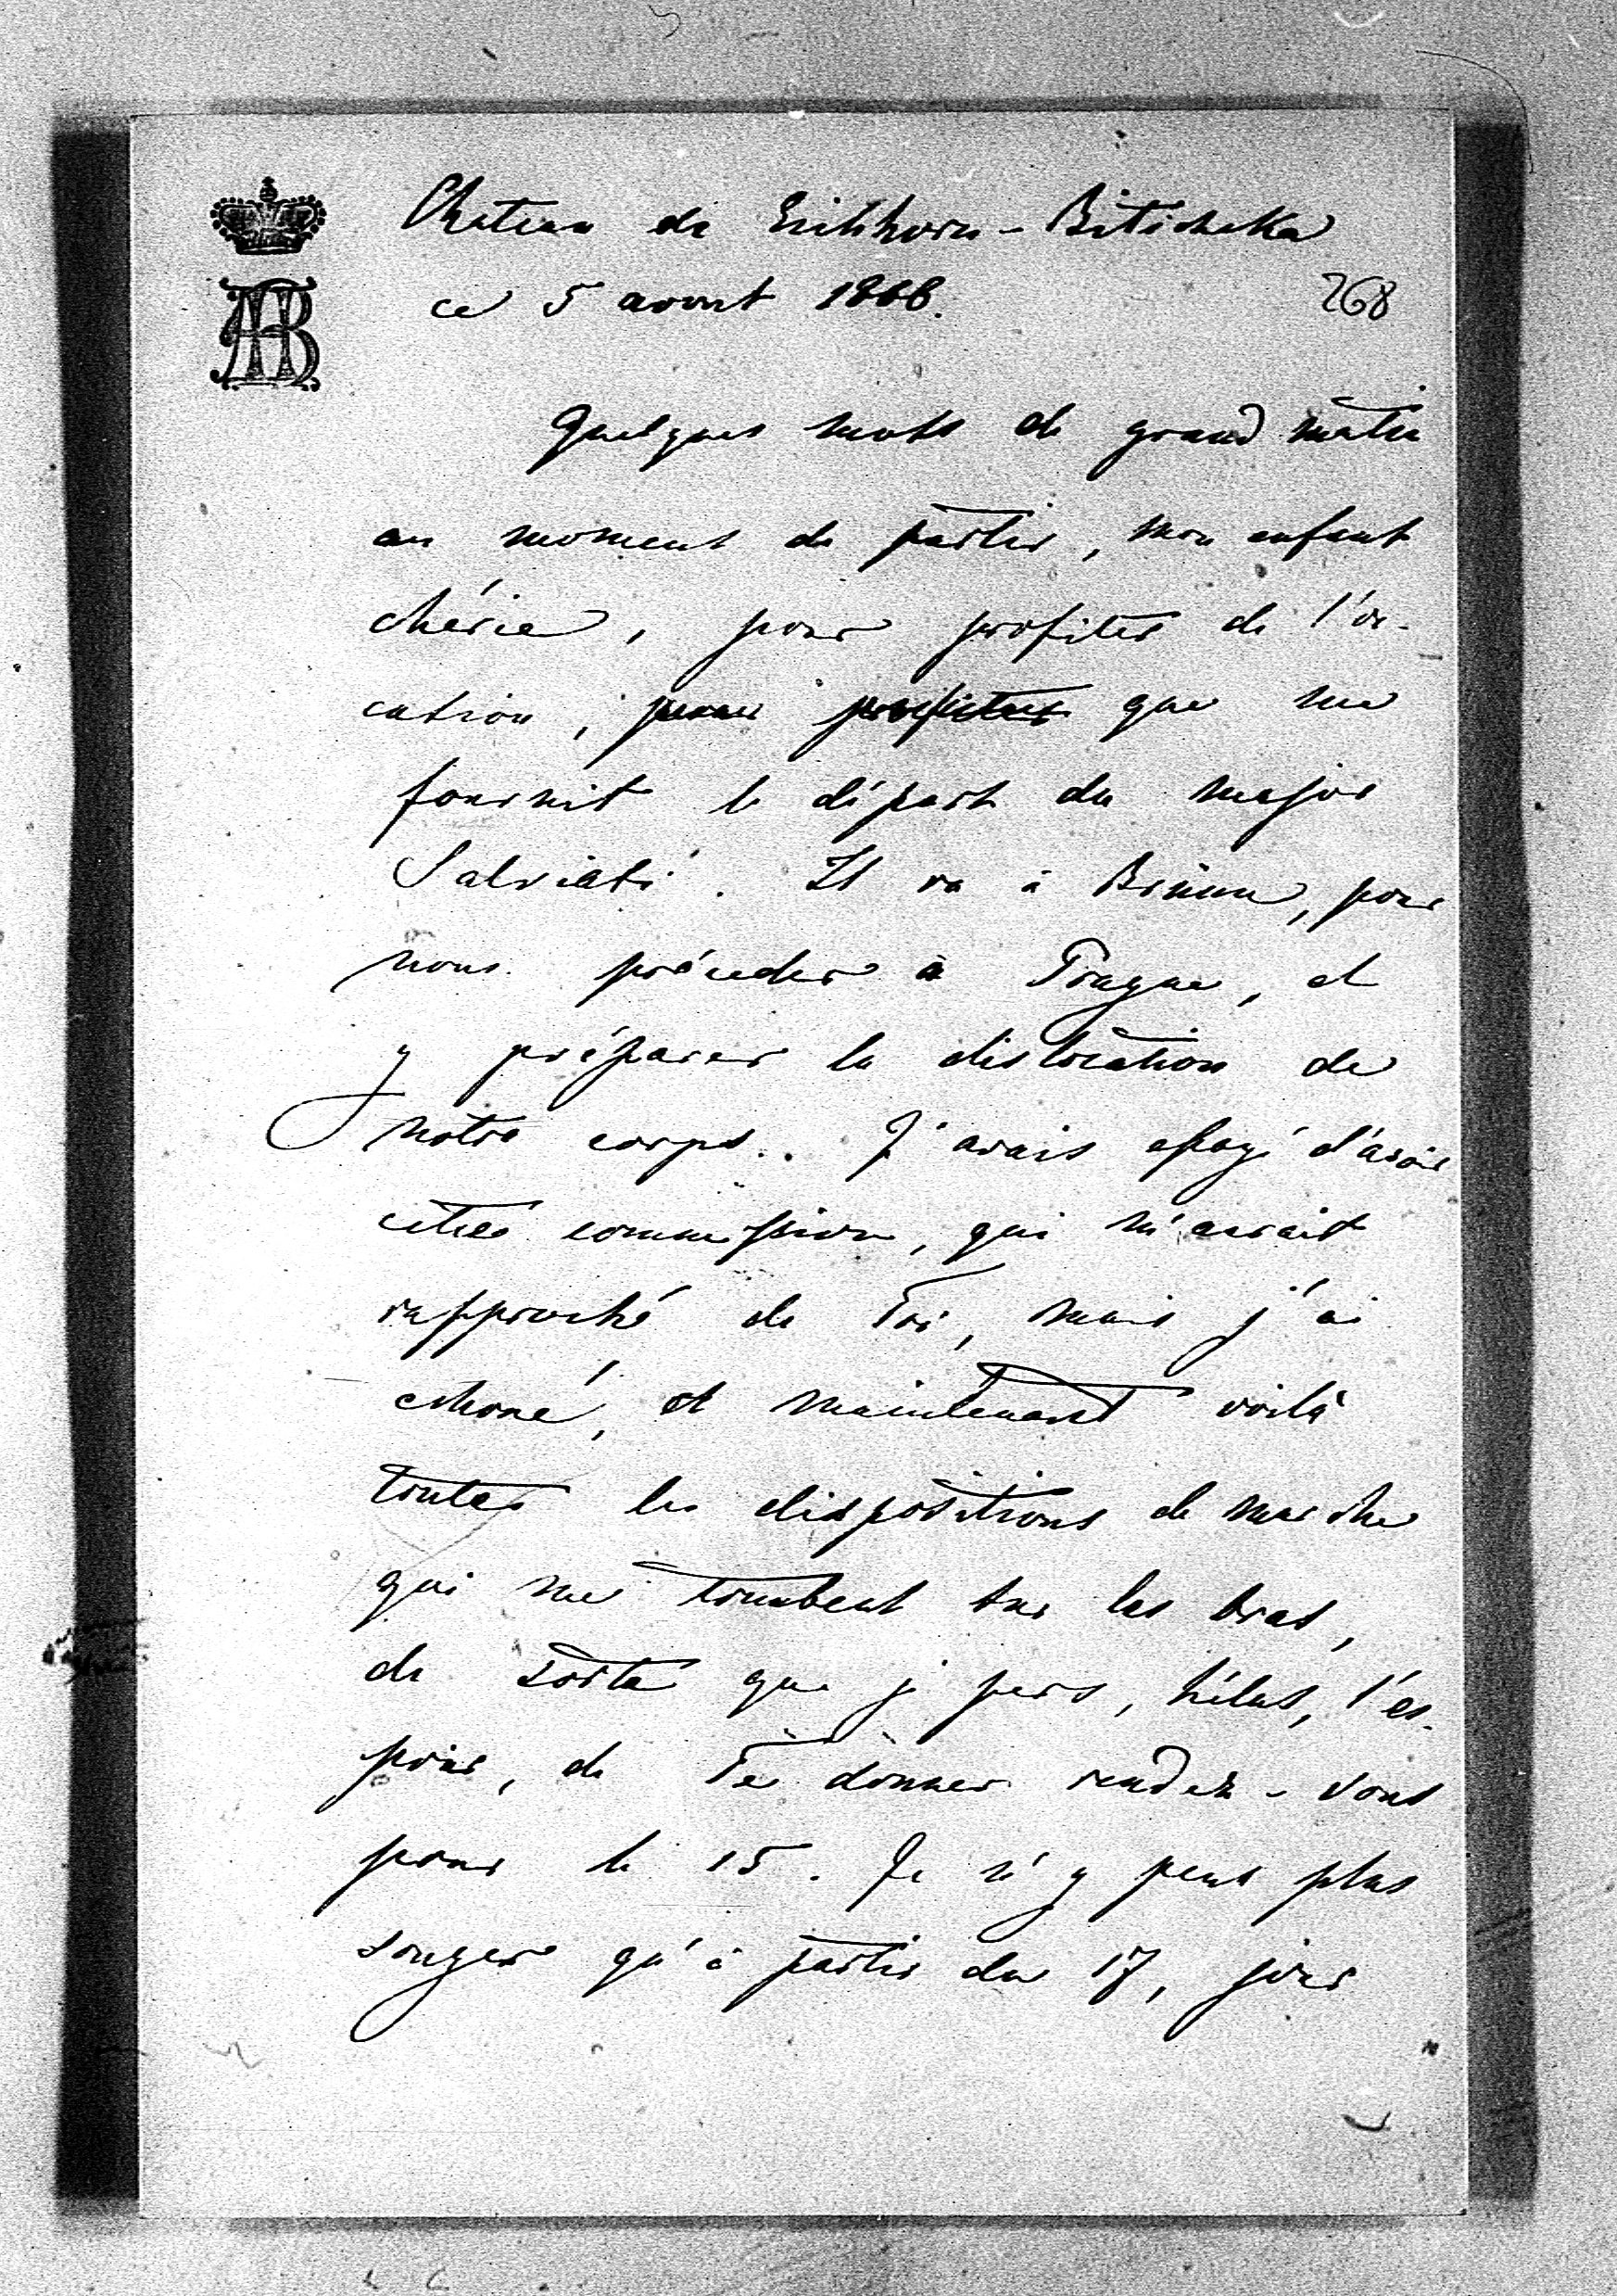 Chateau de Eichhorn-Bitischka
ce 5 aout 1866.
268
AR
Quelques mots de grand matin
au moment de partir, mon enfant
chérie, pour profiter de l'oc-
casion, pour profiter que me
fournit le départ du major
Salviati. Il va à Brünn, pour
nous précéder à Prague, et
y préparer la dislocation de
notre corps. J'avais essayé d'avoir
cette commission, qui m'aurait
rapproché de Toi, mais j'ai
échoué, et maintenant voilà
toutes les dispositions de marche
qui me tombent sur les bras,
de sorte que je pers, hélas, l'es-
poir, de Te donner rendez-vous
pour le 15. Je n'y peux plus
songer qu'à partir du 17, jour